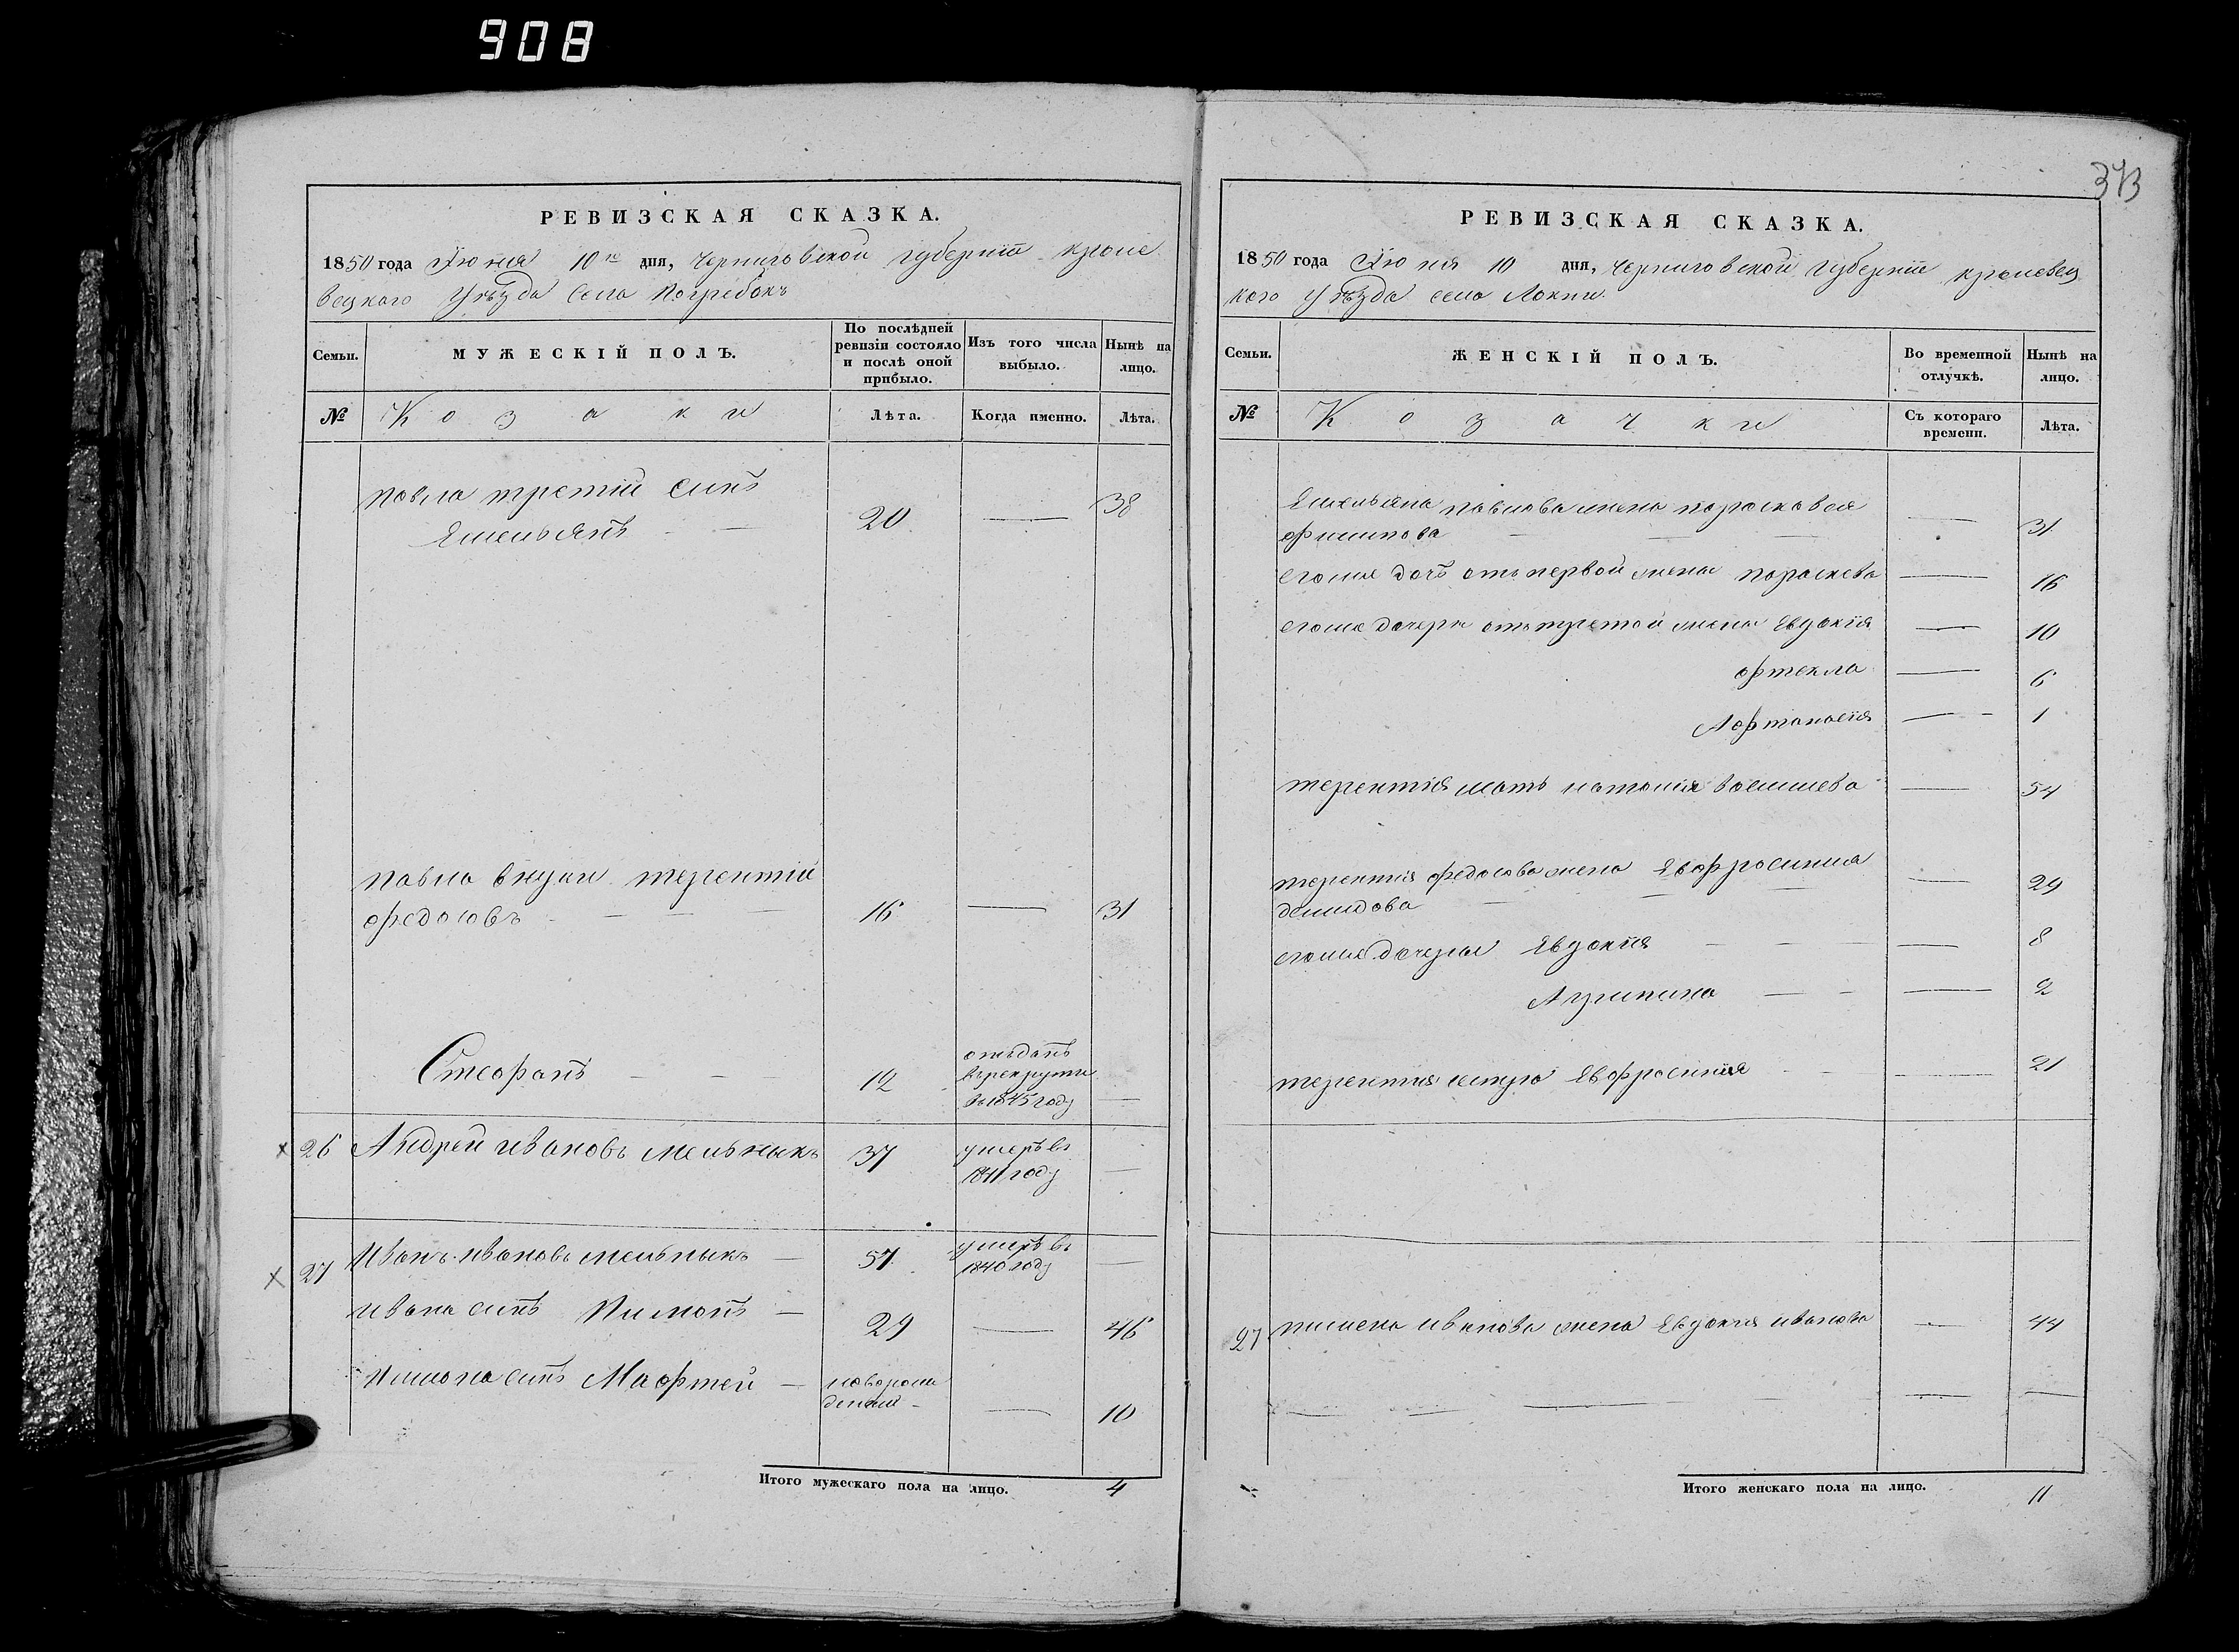 908
373
РЕВИЗСКАЯ СКАЗКА.
1850 года Июня 10го дня, Черниговской губернии Кроле
вецкого уѣзда Села Погребокъ
Семьи. МУЖЕСКІЙ ПОЛЪ. По послѣдней ревизіи состояло и послѣ оной прибыло. Изъ того числа выбыло. Нынѣ на лицо.
№ Козаки Лѣта. Когда именно. Лѣта.
павла третій синъ
Емельянъ — 20 — 38
павла внуки терентій
федосовъ — — — 16 — 31
Стефанъ — — 12 отъданъ
въ рекруты
въ 1845 году —
26 Андрей ивановъ мельныкъ 37 умеръ въ
1841 году —
27 Иванъ ивановъ мельныкъ — 57 умеръ въ
1840 году —
ивана синъ Пимонъ — 29 — 46
Пимона синъ Мафтей — новорож
денній — — 10
Итого мужескаго пола на лицо. 4
РЕВИЗСКАЯ СКАЗКА.
1850 года Июня 10 дня, Черниговской губерніи кролевец
кого уѣзда села Локни
Семьи. ЖЕНСКІЙ ПОЛЪ. Во временной отлучкѣ. Нынѣ на лицо.
№ Козачки Съ котораго времени. Лѣта.
Емельяна павлова жена парасковея
филипова — — — — 31
егоже дочъ отъ первой жены параскева — 16
егоже дочери отъ третой жены Евдокія — 10
фтекла — 6
Афтанасія — 1
терентія мать наталия васильева — 54
терентія федосова жена Евфросиния
демидова — — — — 29
егоже дочери Евдокія — — — 8
Агрипина — — — 2
терентия сестра Евфросиния — — 21
27 пимена иванова жена Евдокия иванова — 44
Итого женскаго пола на лицо. 11